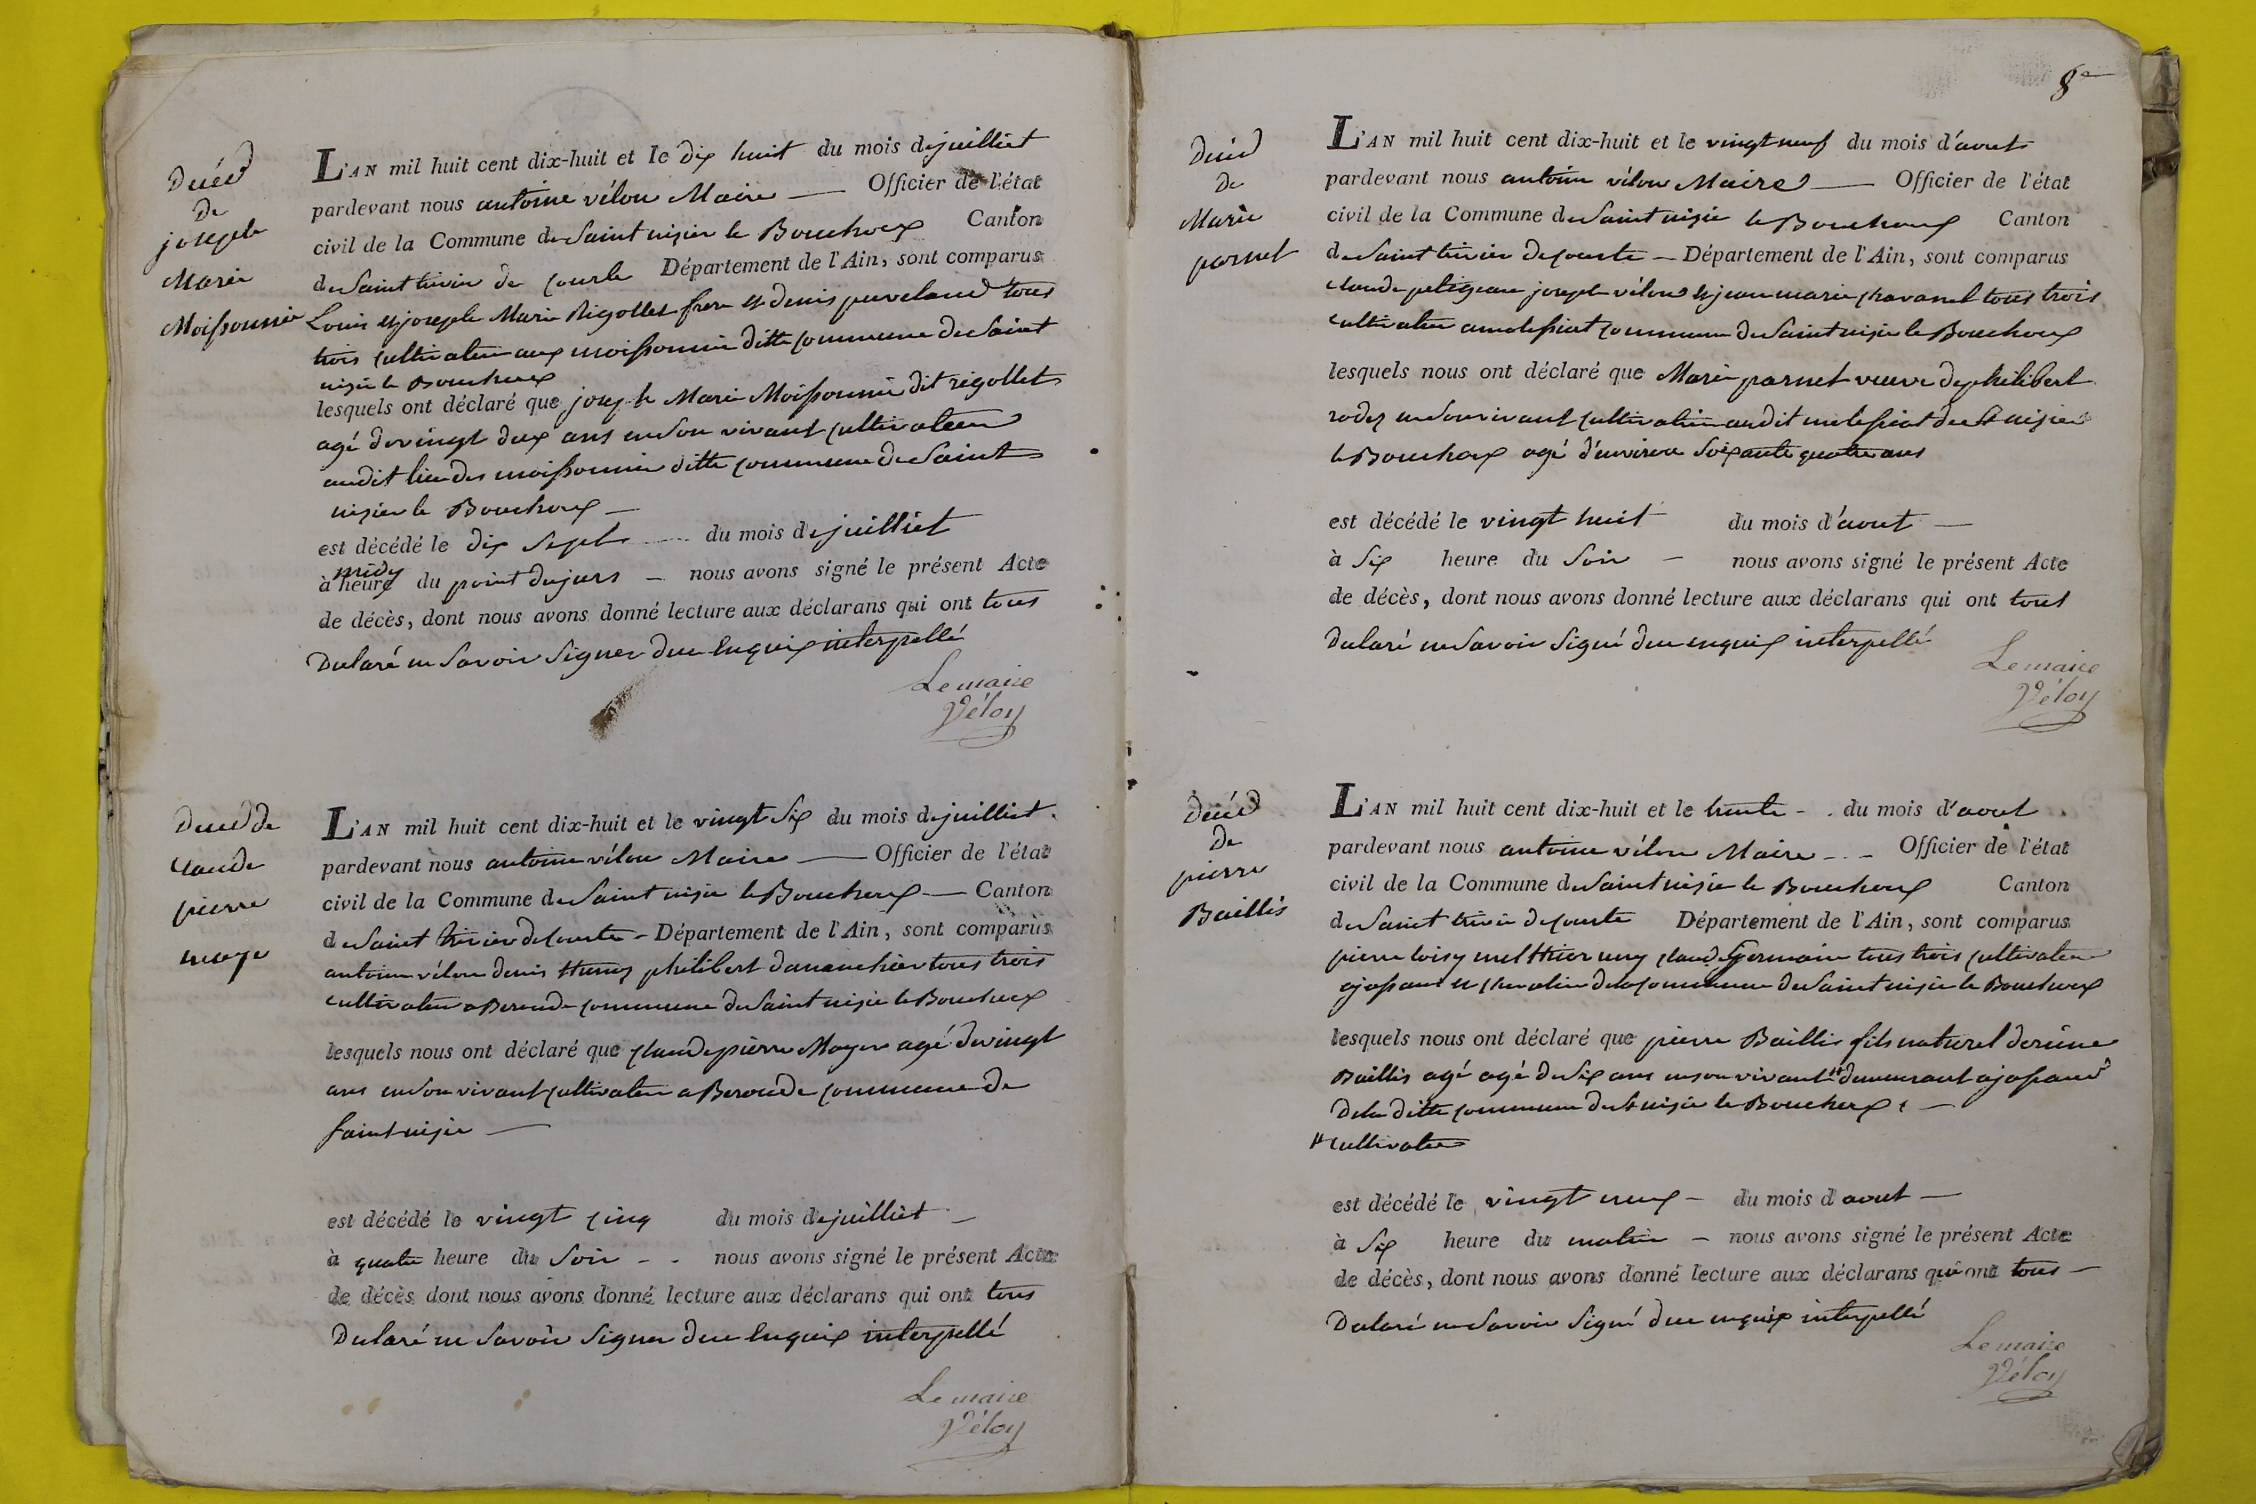 Décéd
de
joseph
Marie
Moissonnié
L'AN mil huit cent dix-huit et le dix huit du mois de juilliet
pardevant nous antoine vélou Maire — Officier de l'état
civil de la Commune de Saint nizier le Bouchoux Canton
de Saint trivier de courte Département de l'Ain, sont comparus
Louis et joseph Marie Rigollet frere et denis tous
trois cultivateur aux moissonnier ditte commune de Saint
nizié le Bouchoux
lesquels ont déclaré que joseph Marie Moissonnié dit rigollet
agé de vingt deux ans en son vivant cultivateur
au dit lieu des moissonnier ditte commune de Saint
nizier le Bouchoux —
est décédé le dix Sept du mois de juilliet
à midy heure du point du jurs — nous avons signé le présent Acte
de décès, dont nous avons donné lecture aux déclarans qui ont tous
Déclaré ne Savoir Signer de ce Enquix interpellé
Le maire
Vélou
Décéd de
claude
pierre
moye
L'AN mil huit cent dix-huit et le vingt Six du mois de juilliet
pardevant nous antoine vélou Maire — Officier de l'état
civil de la Commune de Saint nizie le Bouchoux — Canton
de Saint trivier de courte — Département de l'Ain, sont comparus
antoine vélou denis philibert tous trois
cultivateur a Beroude commune de Saint nizié le Bouchoux
lesquels nous ont déclaré que claude pierre Moyer agé de vingt
ans en Son vivant cultivateur a Beroude commune de
Saint nizié —
est décédé le vingt cinq du mois de juilliet —
à quatre heure du Soir - - nous avons signé le présent Acte
de décès dont nous avons donné lecture aux déclarans qui ont tous
Déclaré ne Savoir Signer de ce Enquix interpellé
Le maire
Vélou
8e
Décéd
de
Marie
parnet
L'AN mil huit cent dix-huit et le vingt neuf du mois d'aout
pardevant nous antoine vélou Maire — Officier de l'état
civil de la Commune de Saint nizié le Bouchoux Canton
de Saint trivier de courte — Département de l'Ain, sont comparus
claude petitjean joseph vélou et jean marie chavanel tous trois
cultivateur a molissiat commune de Saint nizié le Bouchoux
lesquels nous ont déclaré que Marie parnet veuve de philibert
rodez en Son vivant cultivatrie au dit molissiat de St nizier
le Bouchoux agé d'environ Soixante quatre ans
est décédé le vingt huit du mois d'aout —
à Six heure du Soir — nous avons signé le présent Acte
de décès, dont nous avons donné lecture aux déclarans qui ont tous
Déclaré ne Savoir Signé de ce enquix interpellé
Le maire
Vélou
Décéd
de
pierre
Baillis
L'AN mil huit cent dix-huit et le trente - . du mois d'aout
pardevant nous antoine vélou Maire - - Officier de l'état
civil de la Commune de Saint nizié le Bouchoux Canton
de Saint trivié de courte Département de l'Ain, sont comparus
pierre loisy claude Germain tous trois cultivateur
a josserand et chevalier de la commune de Saint nizié le Bouchoux
lesquels nous ont déclaré que pierre Baillis fils naturel de reine
Baillis agé agé de Six ans en son vivant # demeurant a josserand
De la ditte commune de St nizié le Bouchoux —
# cultivateur
est décédé le vingt neuf — du mois d aout —
à Six heure du matin — nous avons signé le présent Acte
de décès, dont nous avons donné lecture aux déclarans qui ont tous —
Déclaré ne Savoir Signé de ce enquix interpellé
Le maire
Vélou